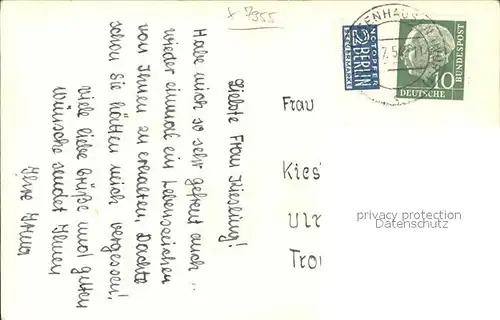 x 7355
Liebste Frau Kiesling!
Habe mich so sehr gefreut auch
wieder einmal ein Lebenszeichen
von Ihnen zu erhalten. Dachte
schon Sie hätten mich vergessen!
Viele liebe Grüße und guten
Wünsche sendet Ihnen
Ihre
Frau
Kies
Ulr
Tro
NOTOPFER
2 BERLIN
STEUERMARKE
10
DEUTSCHE BUNDESPOST
privacy protection
Datenschutz